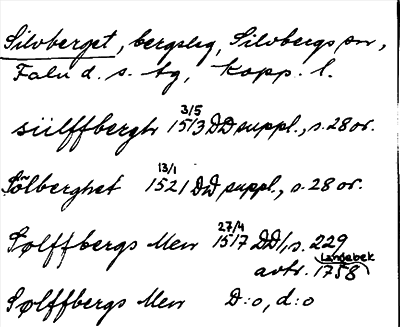 Silvberget, bergslag, Silvbergs sn,
Falu d. s. tg, Kopp. l.
sülffbergh 3/5 1513 DD suppl., s. 28 or.
Sölberghet 13/1 1521 DD suppl., s. 28 or.
Sølffbergs Men 27/4 1517 DD1, s. 229
avtr. Langebek 1758
Sølffbergs Men D:o, d:o